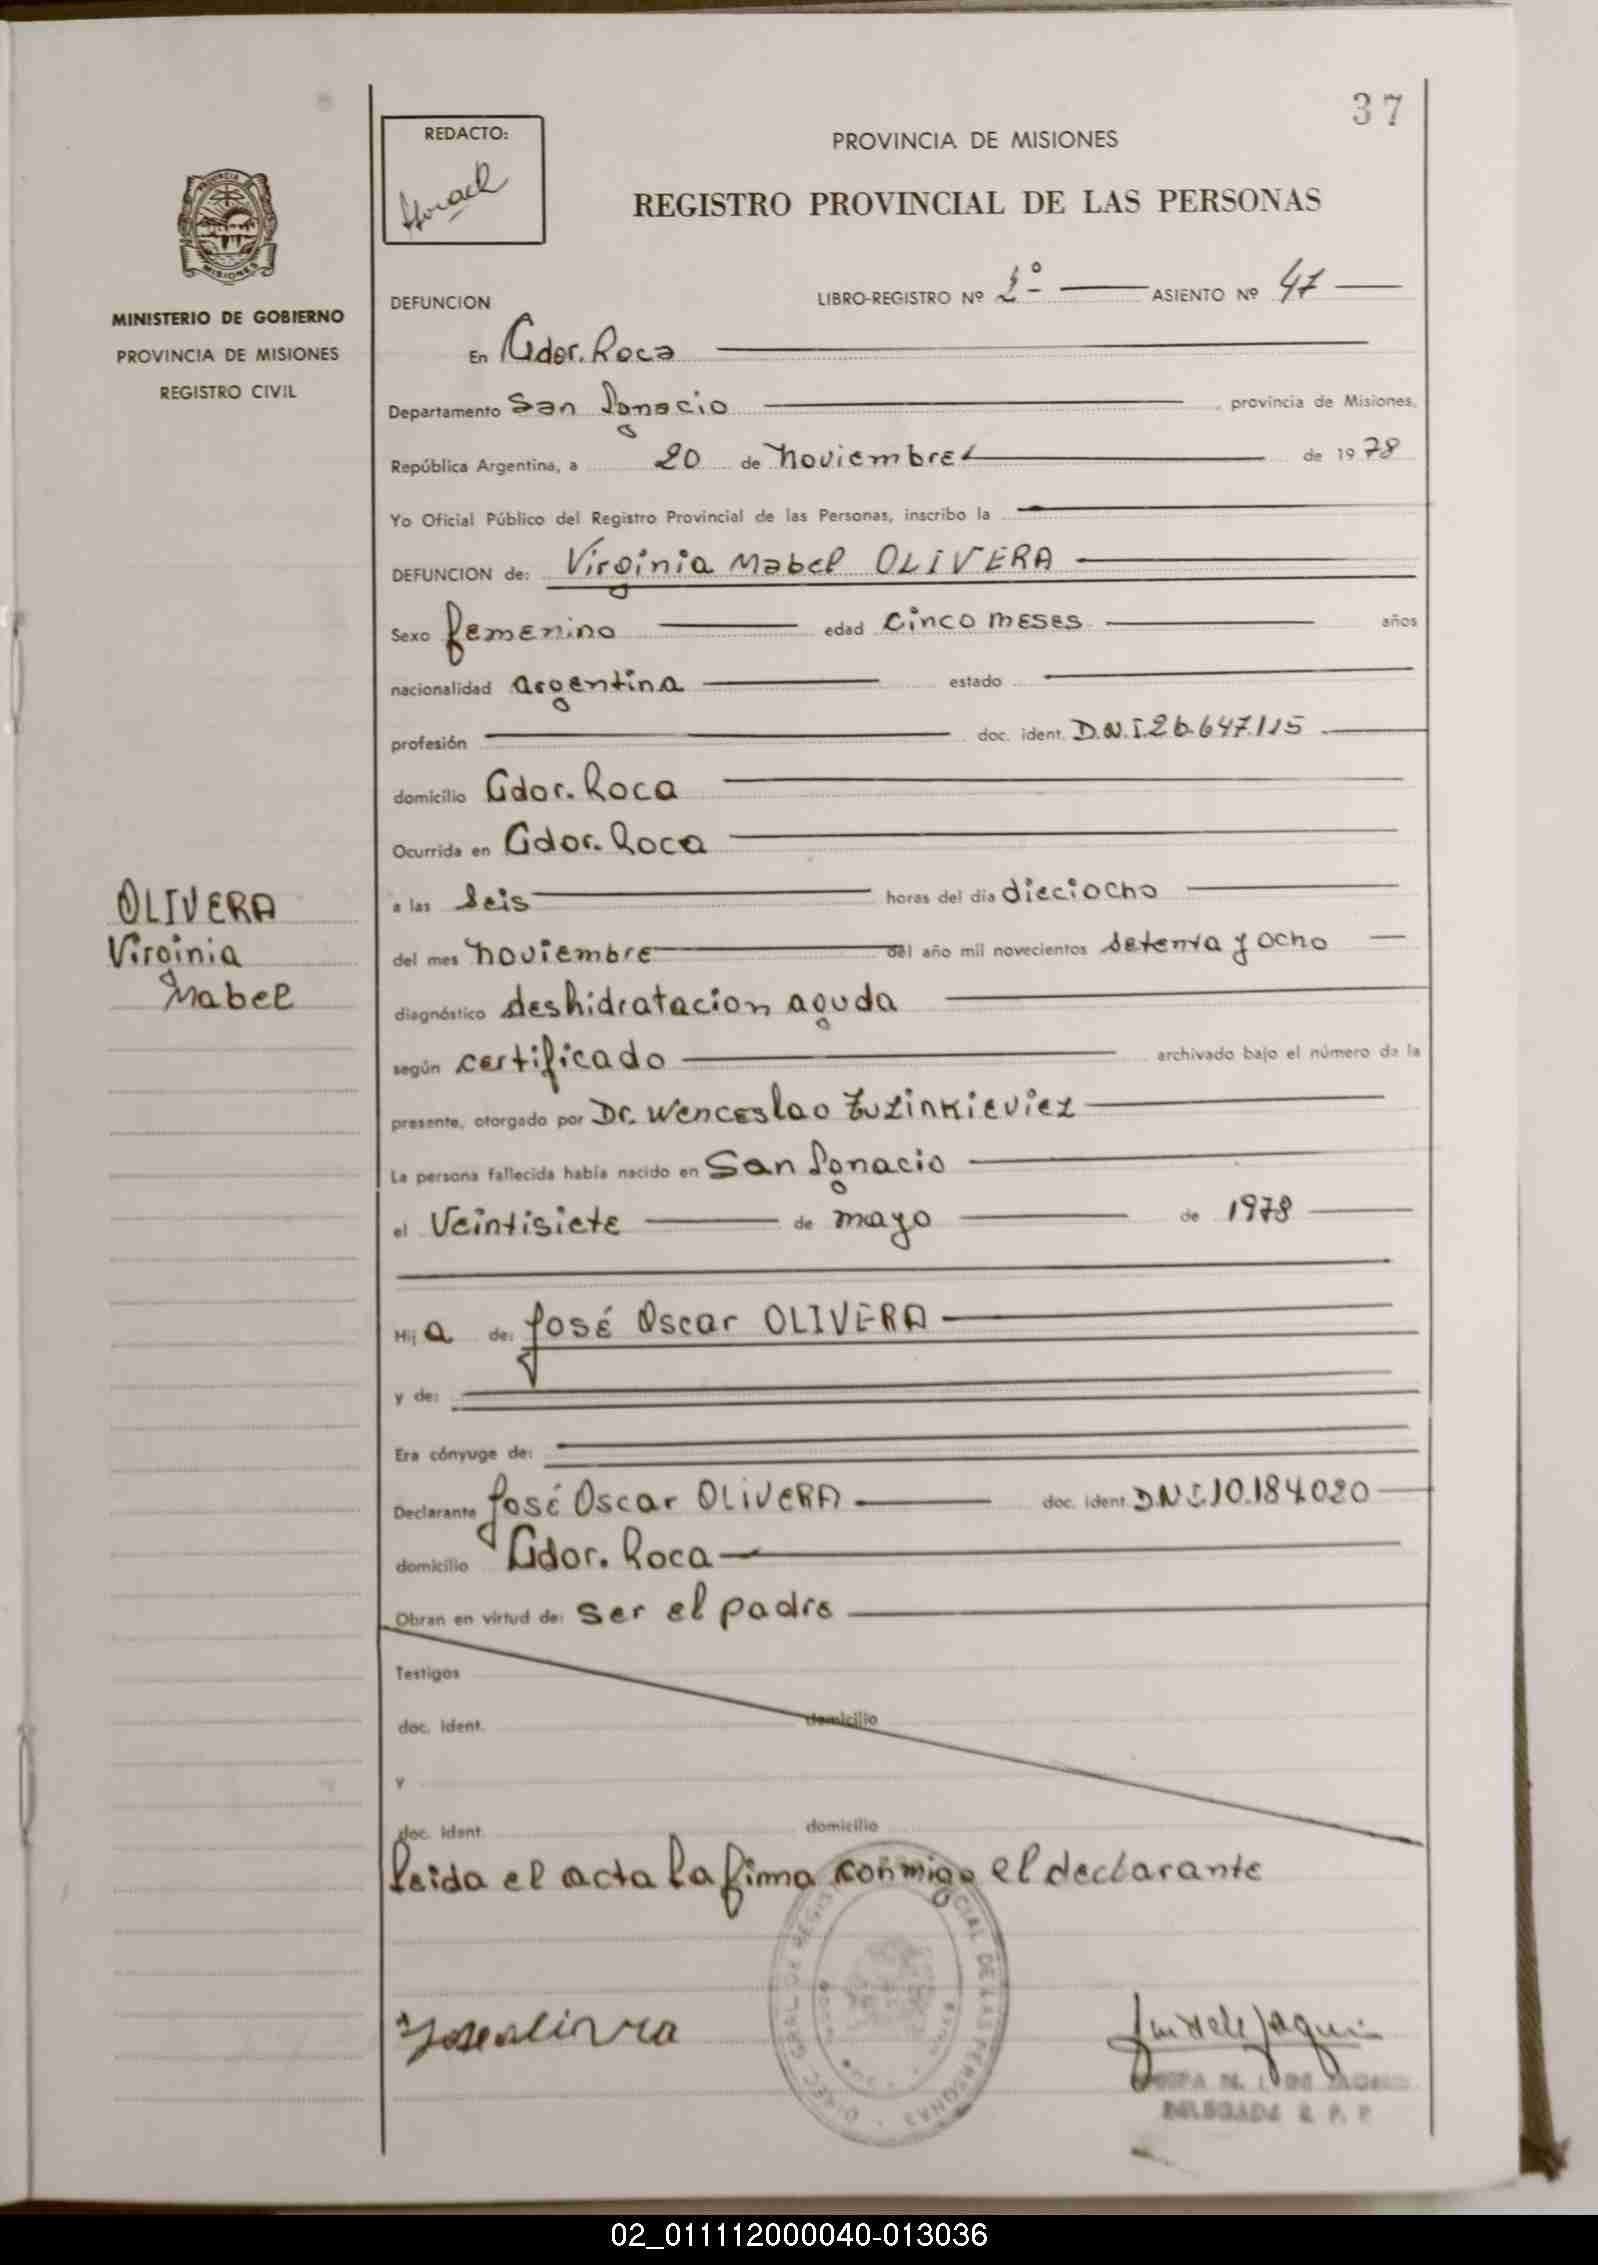 37
REDACTO:
PROVINCIA DE MISIONES
REGISTRO PROVINCIAL DE LAS PERSONAS
MINISTERIO DE GOBIERNO
PROVINCIA DE MISIONES
REGISTRO CIVIL
DEFUNCION LIBRO-REGISTRO Nº ASIENTO Nº 47
En Gdor. Roca
Departamento San Ignacio, provincia de Misiones,
República Argentina, a 20 de noviembre de 1978
Yo Oficial Público del Registro Provincial de las Personas, inscribo la
DEFUNCION de: Virginia Mabel OLIVERA
Sexo femenino edad cinco meses años
nacionalidad argentina estado
profesión doc. ident. D.N.I. 26.647.115
domicilio Gdor. Roca
Ocurrida en Gdor. Roca
OLIVERA
Virginia
Mabel
a las seis horas del día dieciocho
del mes noviembre del año mil novecientos setenta y ocho
diagnóstico deshidratacion aguda
según certificado archivado bajo el número de la
presente, otorgado por Dr. Wenceslao Zuzinkieviez
La persona fallecida había nacido en San Ignacio
el Veintisiete de mayo de 1978
Hija de: José Oscar OLIVERA
y de:
Era cónyuge de:
Declarante José Oscar OLIVERA doc. ident. D.N.I. 10.184.020
domicilio Gdor. Roca
Obran en virtud de: ser el padre
Testigos
doc. ident. domicilio
y
doc. ident. domicilio
leida el acta la firma conmigo el declarante
DELEGADA R. P. P.
02_011112000040-013036